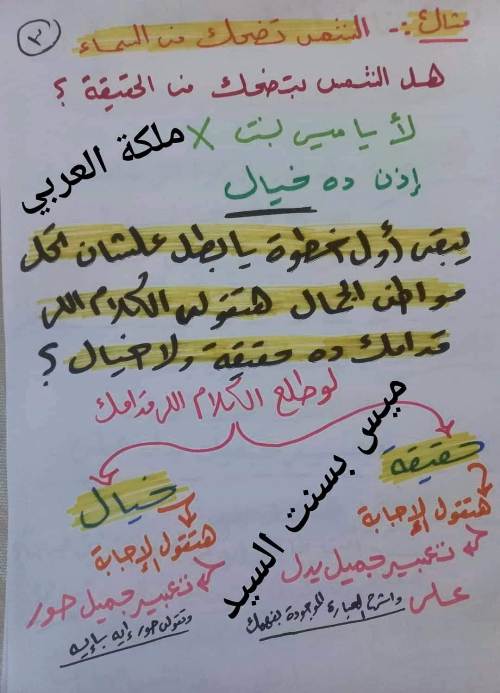 ٣
مثال :- الشمس تضحك في السماء
هل الشمس بتضحك في الحقيقة ؟
لأ يا ميس بسنت X
ملكة العربي
إذن ده خيال
يبقى أول خطوة يا بطل علشان تحل
مواطن الجمال هتقولي الكلام اللي
قدامك ده حقيقة ولا خيال ؟
لو طلع الكلام اللي قدامك
ميس بسنت السيد
حقيقة
هتقول الإجابة
تعبير جميل يدل
على
واشرح العبارة الموجودة بفهمك
خيال
هتقول الإجابة
تعبير جميل صور
وتقولي صور إيه بإيه